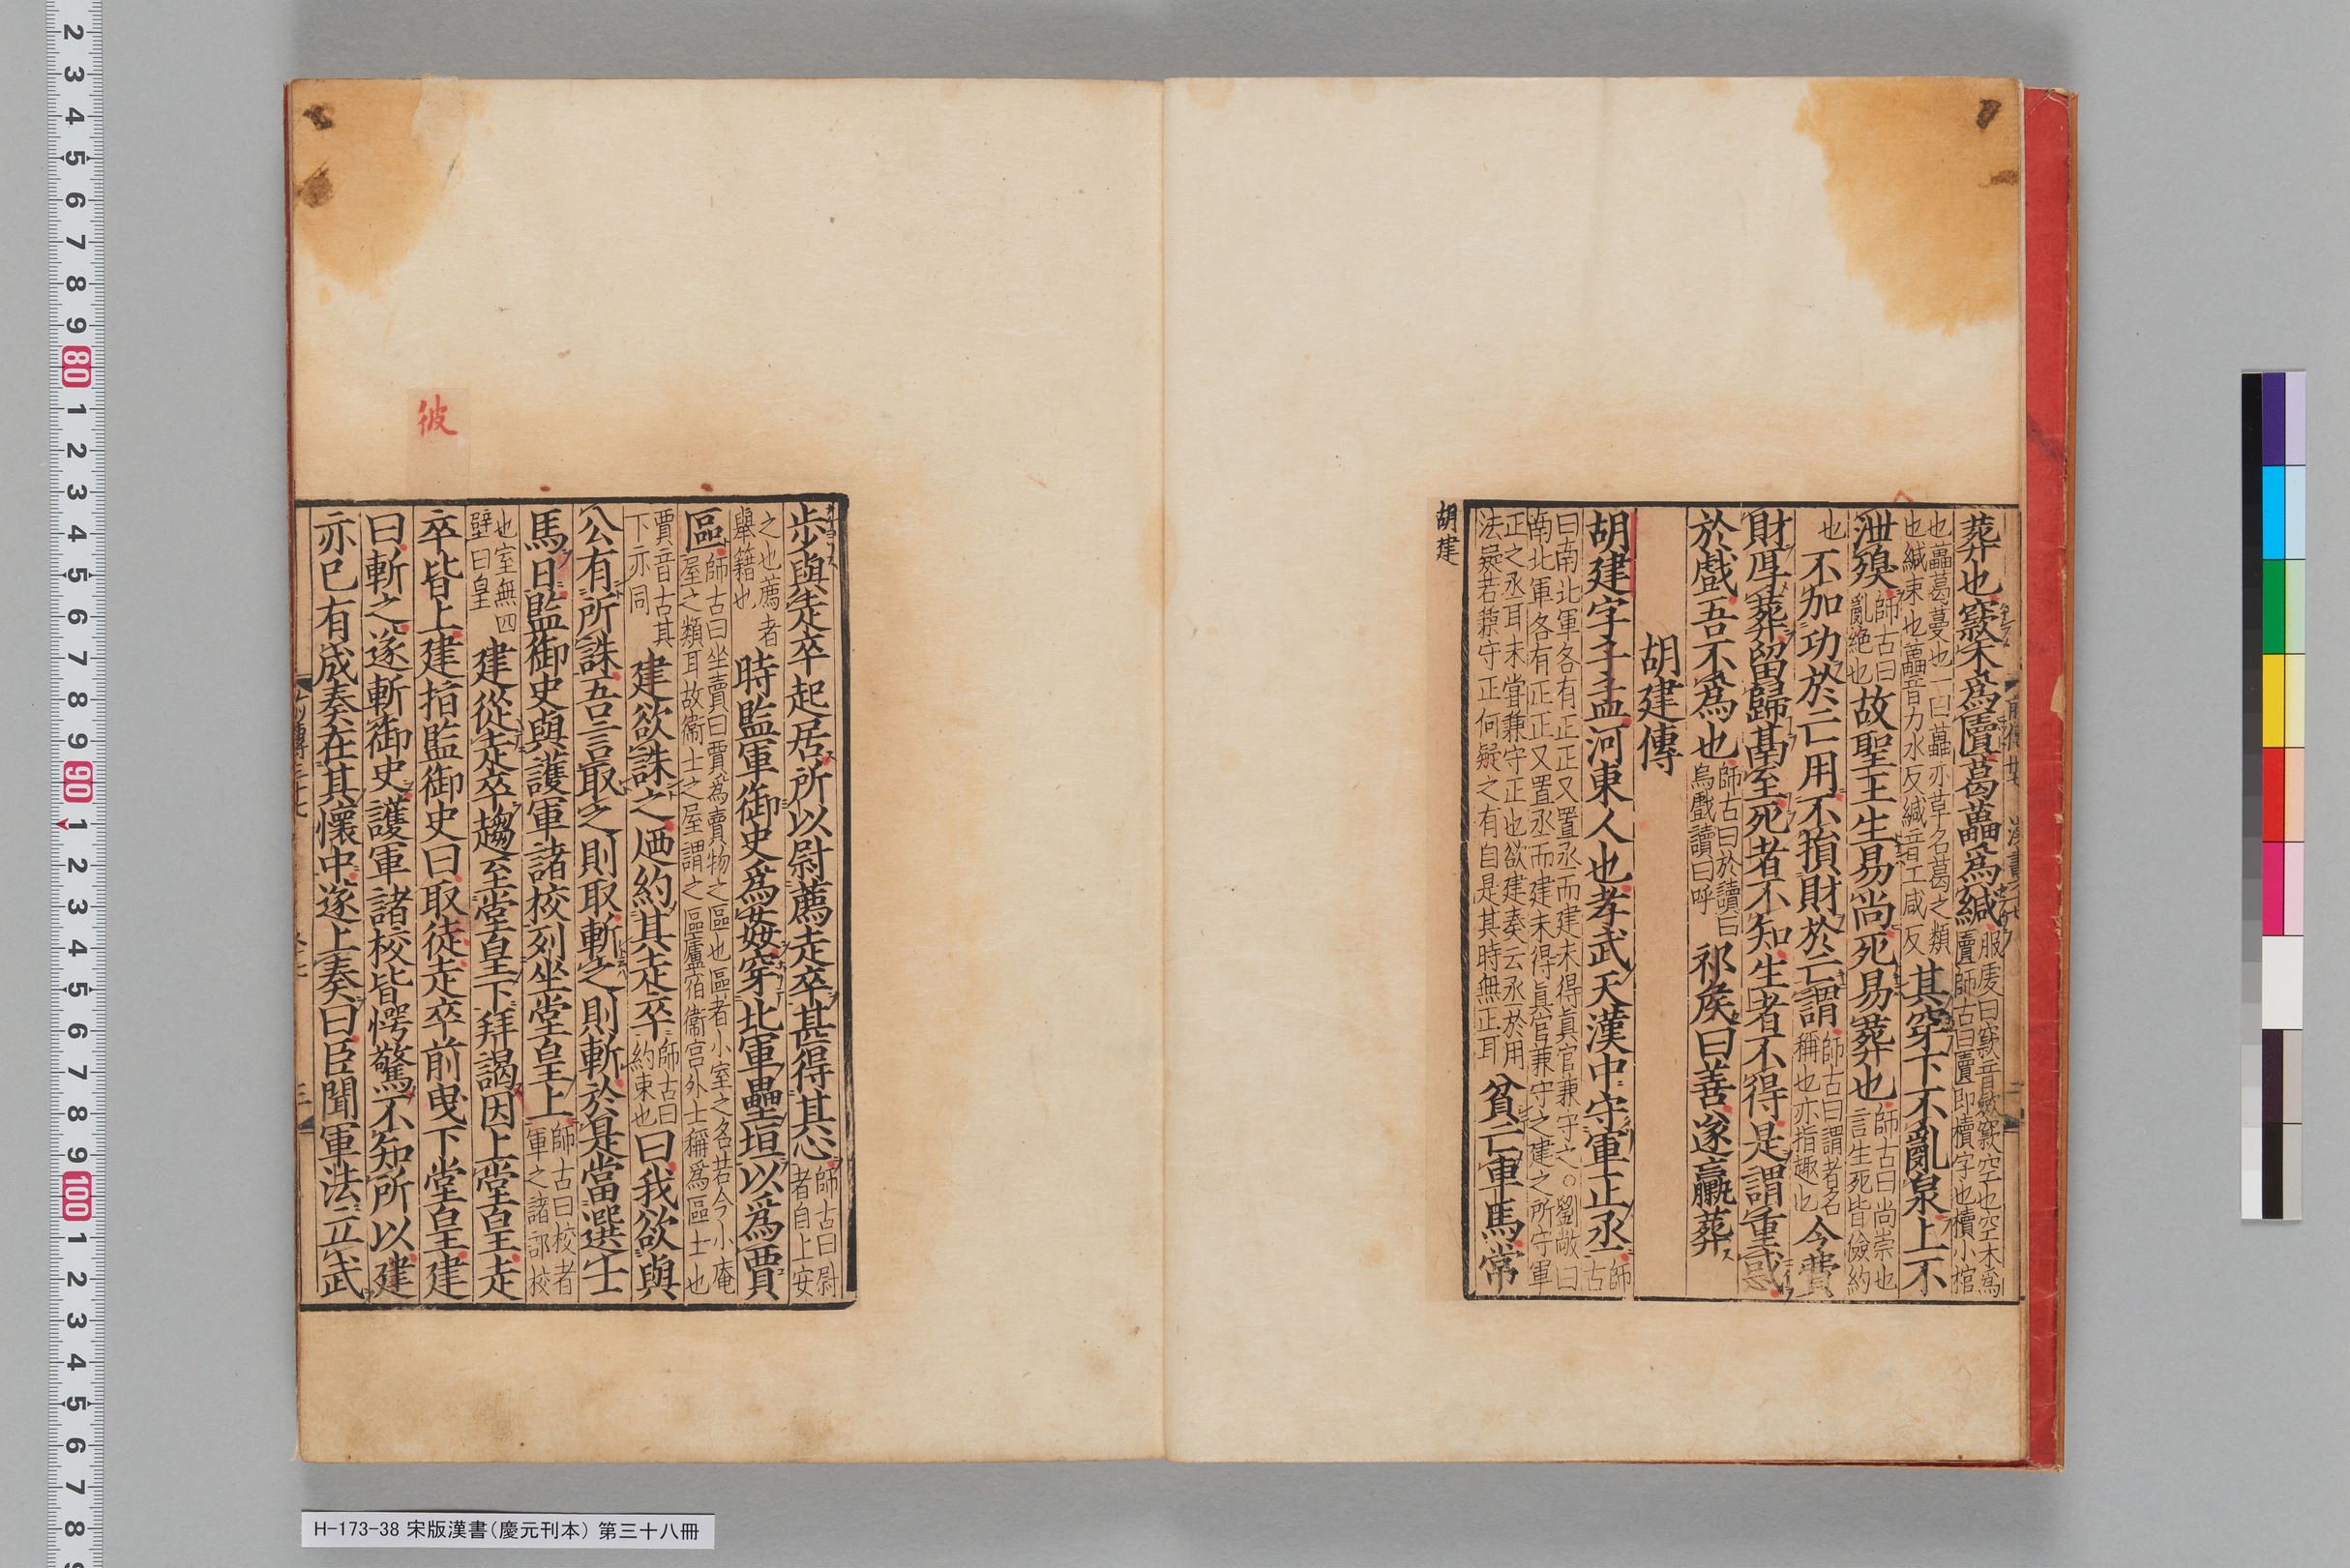 葬也窾木爲匵葛藟爲緘服虔曰窾音款窾空也空木爲匵師古曰匵即櫝字也櫝小棺
也藟葛蔓也一曰藟亦草名葛之類也緘束也藟音力水反緘音工咸反其穿下不亂泉上不
泄殠師古曰亂絶也故聖王生易尚死易葬也師古曰尚崇也言生死皆儉約
也不加功於亡用不損財於亡謂師古曰謂者名稱也亦指趣也今費
財厚葬留歸鬲至死者不知生者不得是謂重惑
於戲吾不爲也師古曰於讀曰烏戲讀曰呼祁侯曰善遂臝葬
胡建傳
胡建字子孟河東人也孝武天漢中守軍正丞師古
曰南北軍各有正正又置丞而建未得眞官兼守之○劉敞曰南北軍各有正正又置丞而建未得眞官兼守之建之所守軍
正之丞耳未當兼守正也欲建奏云丞於用法疑若兼守正何疑之有自是其時無正耳貧亡車馬常
胡建
步與走卒起居所以尉薦走卒甚得其心師古曰尉者自上安
之也薦者舉籍也時監軍御史爲姦穿北軍壘垣以爲賈
區師古曰坐賣曰賈爲賣物之區也區者小室之名若今小庵屋之類耳故衞士之屋謂之區廬宿衞宫外士稱爲區士也
賈音古其下亦同建欲誅之廼約其走卒師古曰約束也曰我欲與
公有所誅吾言取之則取斬之則斬於是當選士
馬日監御史與護軍諸校列坐堂皇上師古曰校者軍之諸部校
也室無四壁曰皇建從走卒趨至堂皇下拜謁因上堂皇走
卒皆上建指監御史曰取彼走卒前曳下堂皇建
曰斬之遂斬御史護軍諸校皆愕驚不知所以建
亦已有成奏在其懷中遂上奏曰臣聞軍法立武
彼
H-173-38 宋版漢書（慶元刊本） 第三十八冊